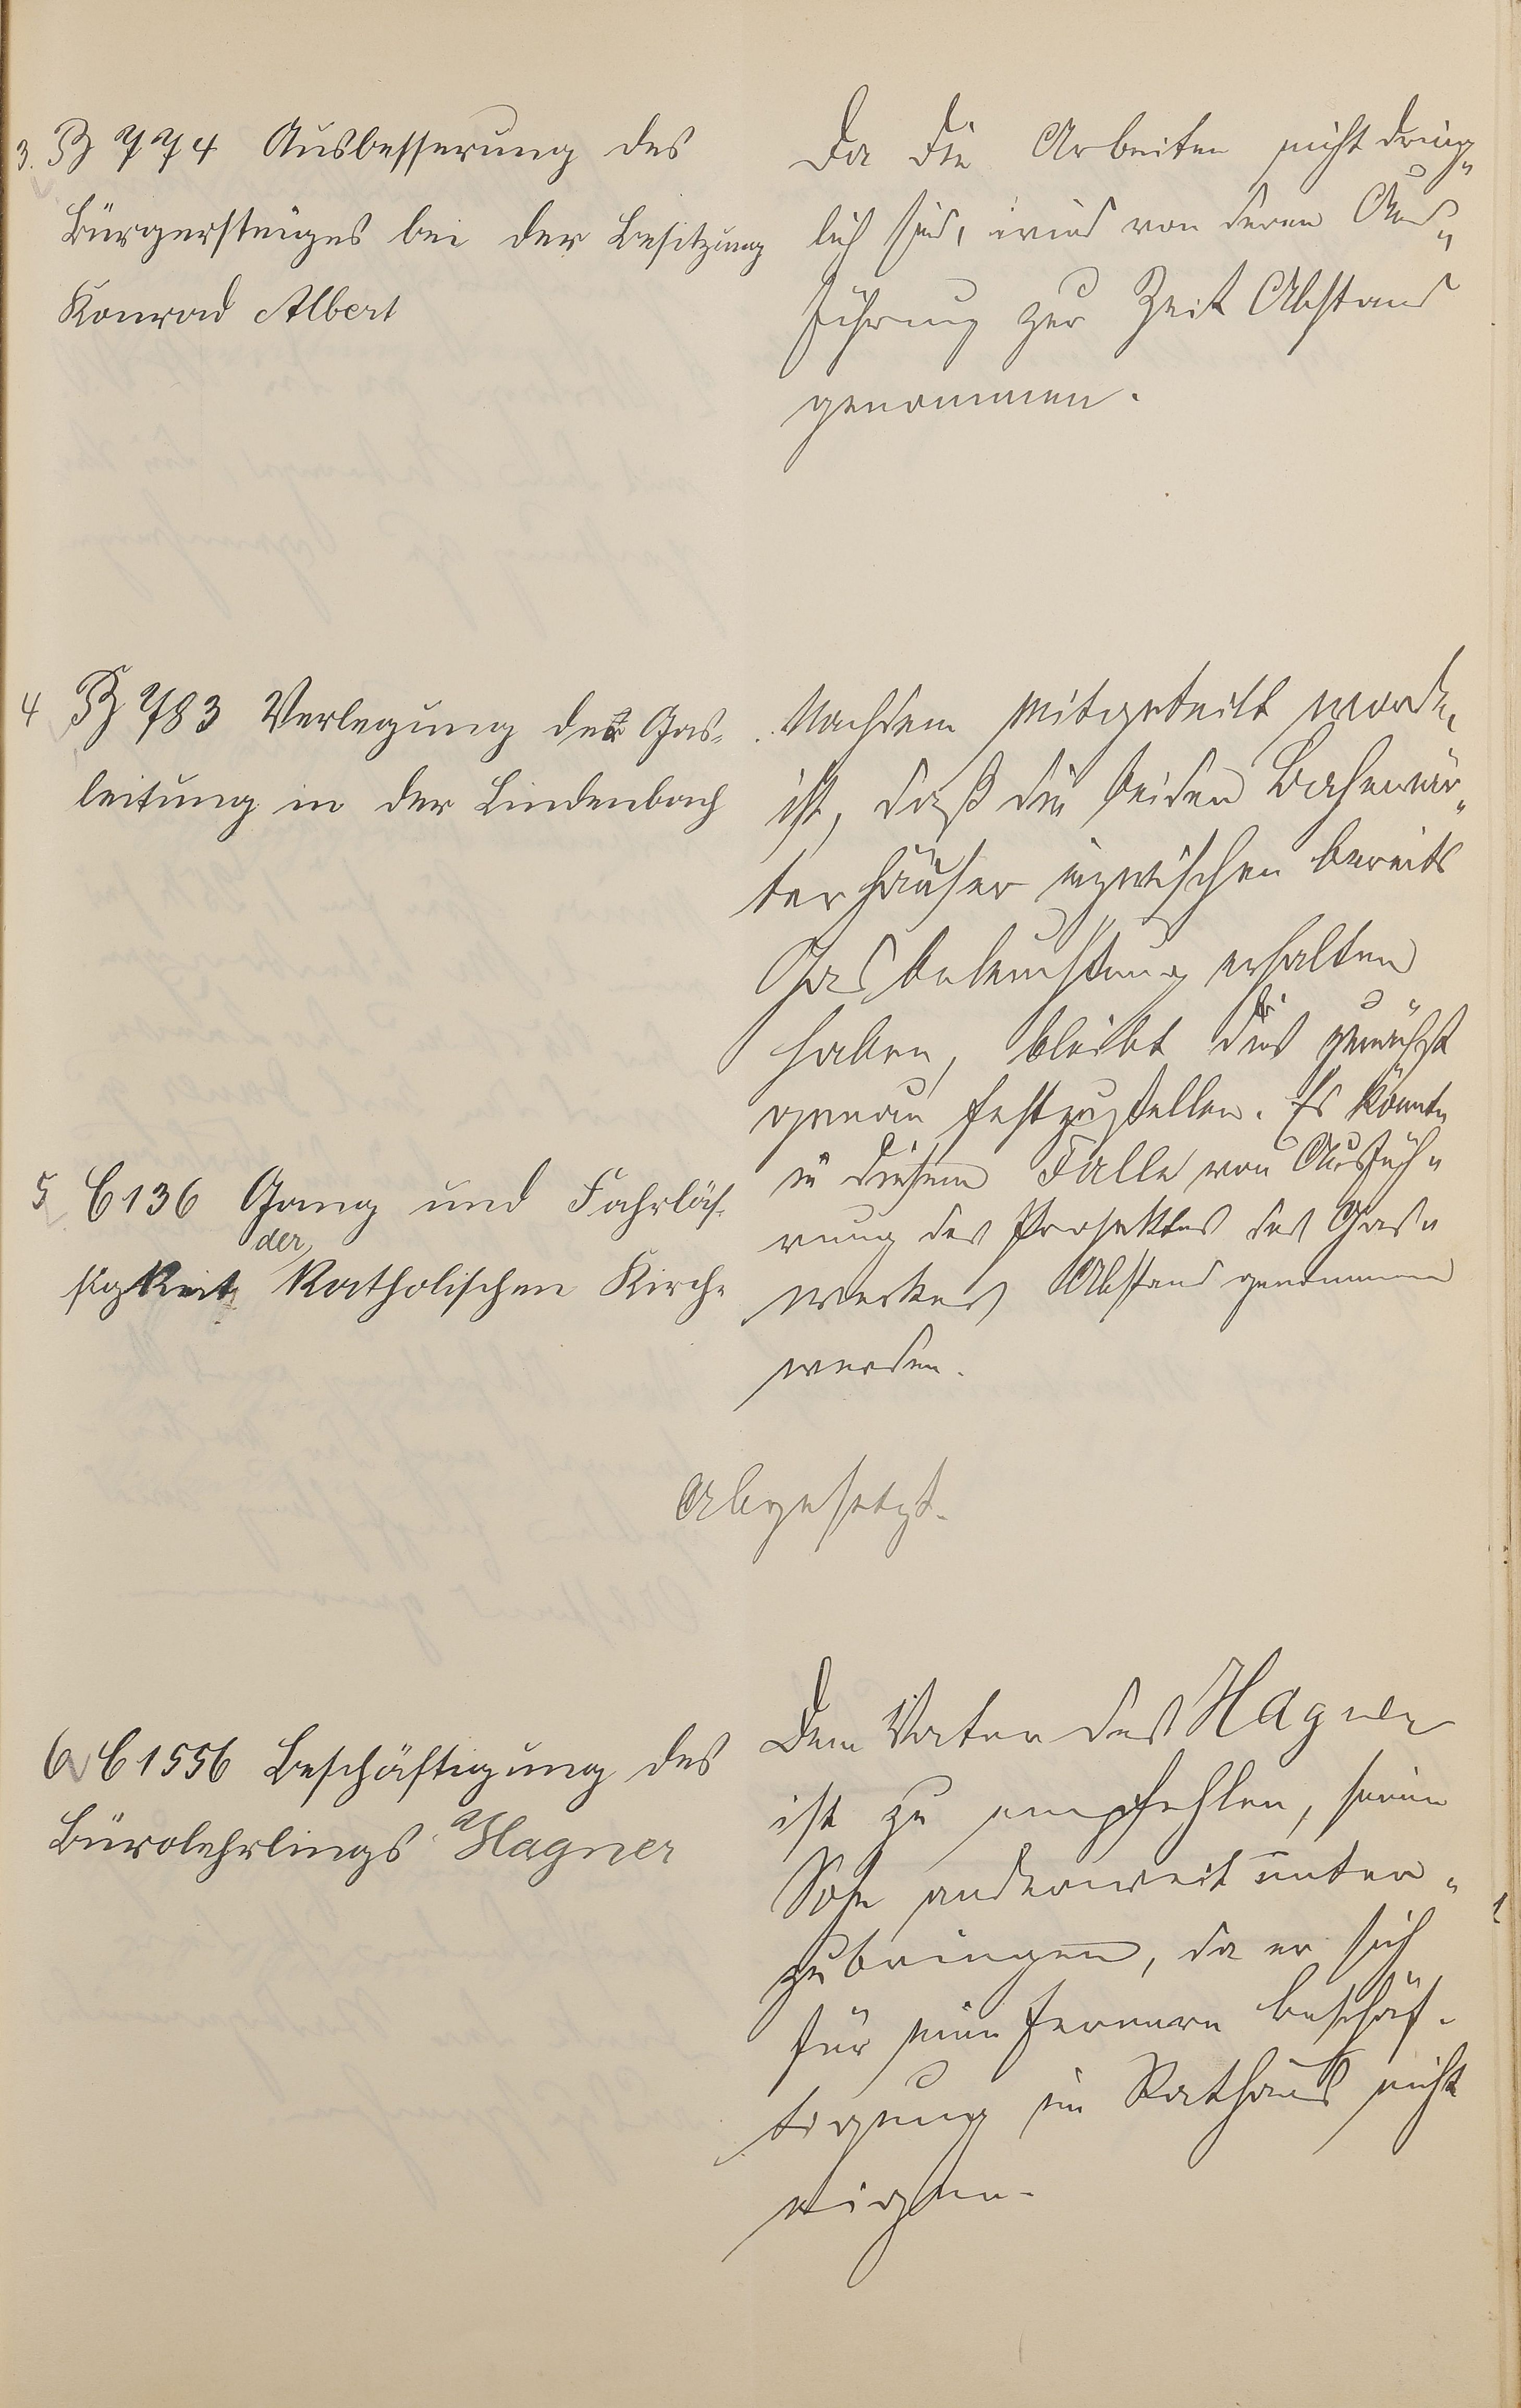 3. B 774 Ausbesserung des
Bürgersteiges bei der Besitzung
Konrad Albert
Da die Arbeiten nicht dring„
lich sind, wird von deren Aus„
führung zur Zeit Abstand
genommen.
4 B 783 Verlegung der Gas-
leitung in der Lindenbach
Nachdem mitgeteilt worden
ist, daß die beiden Bahnwär„
terhäuser inzwischen bereits
Gasbeleuchtung erhalten
haben, bleibt dies zunächst
genau festzustellen. Es könnte
in diesem Falle von Ausfüh„
rung des Projektes des Gas„
werkes Abstand genommen
werden.
5 C 136 Gang und Fahrläs-
sigkeit der Katholischen Kirche
Abgesetzt.
6 C 1556 Beschäftigung des
Bürolehrlings Hagner
Dem Vater des Hagner
ist zu empfehlen, seinen
Sohn anderweit unter„
zubringen, da er sich
für eine fernere Beschäf-
tigung im Rathaus nicht
eigne.